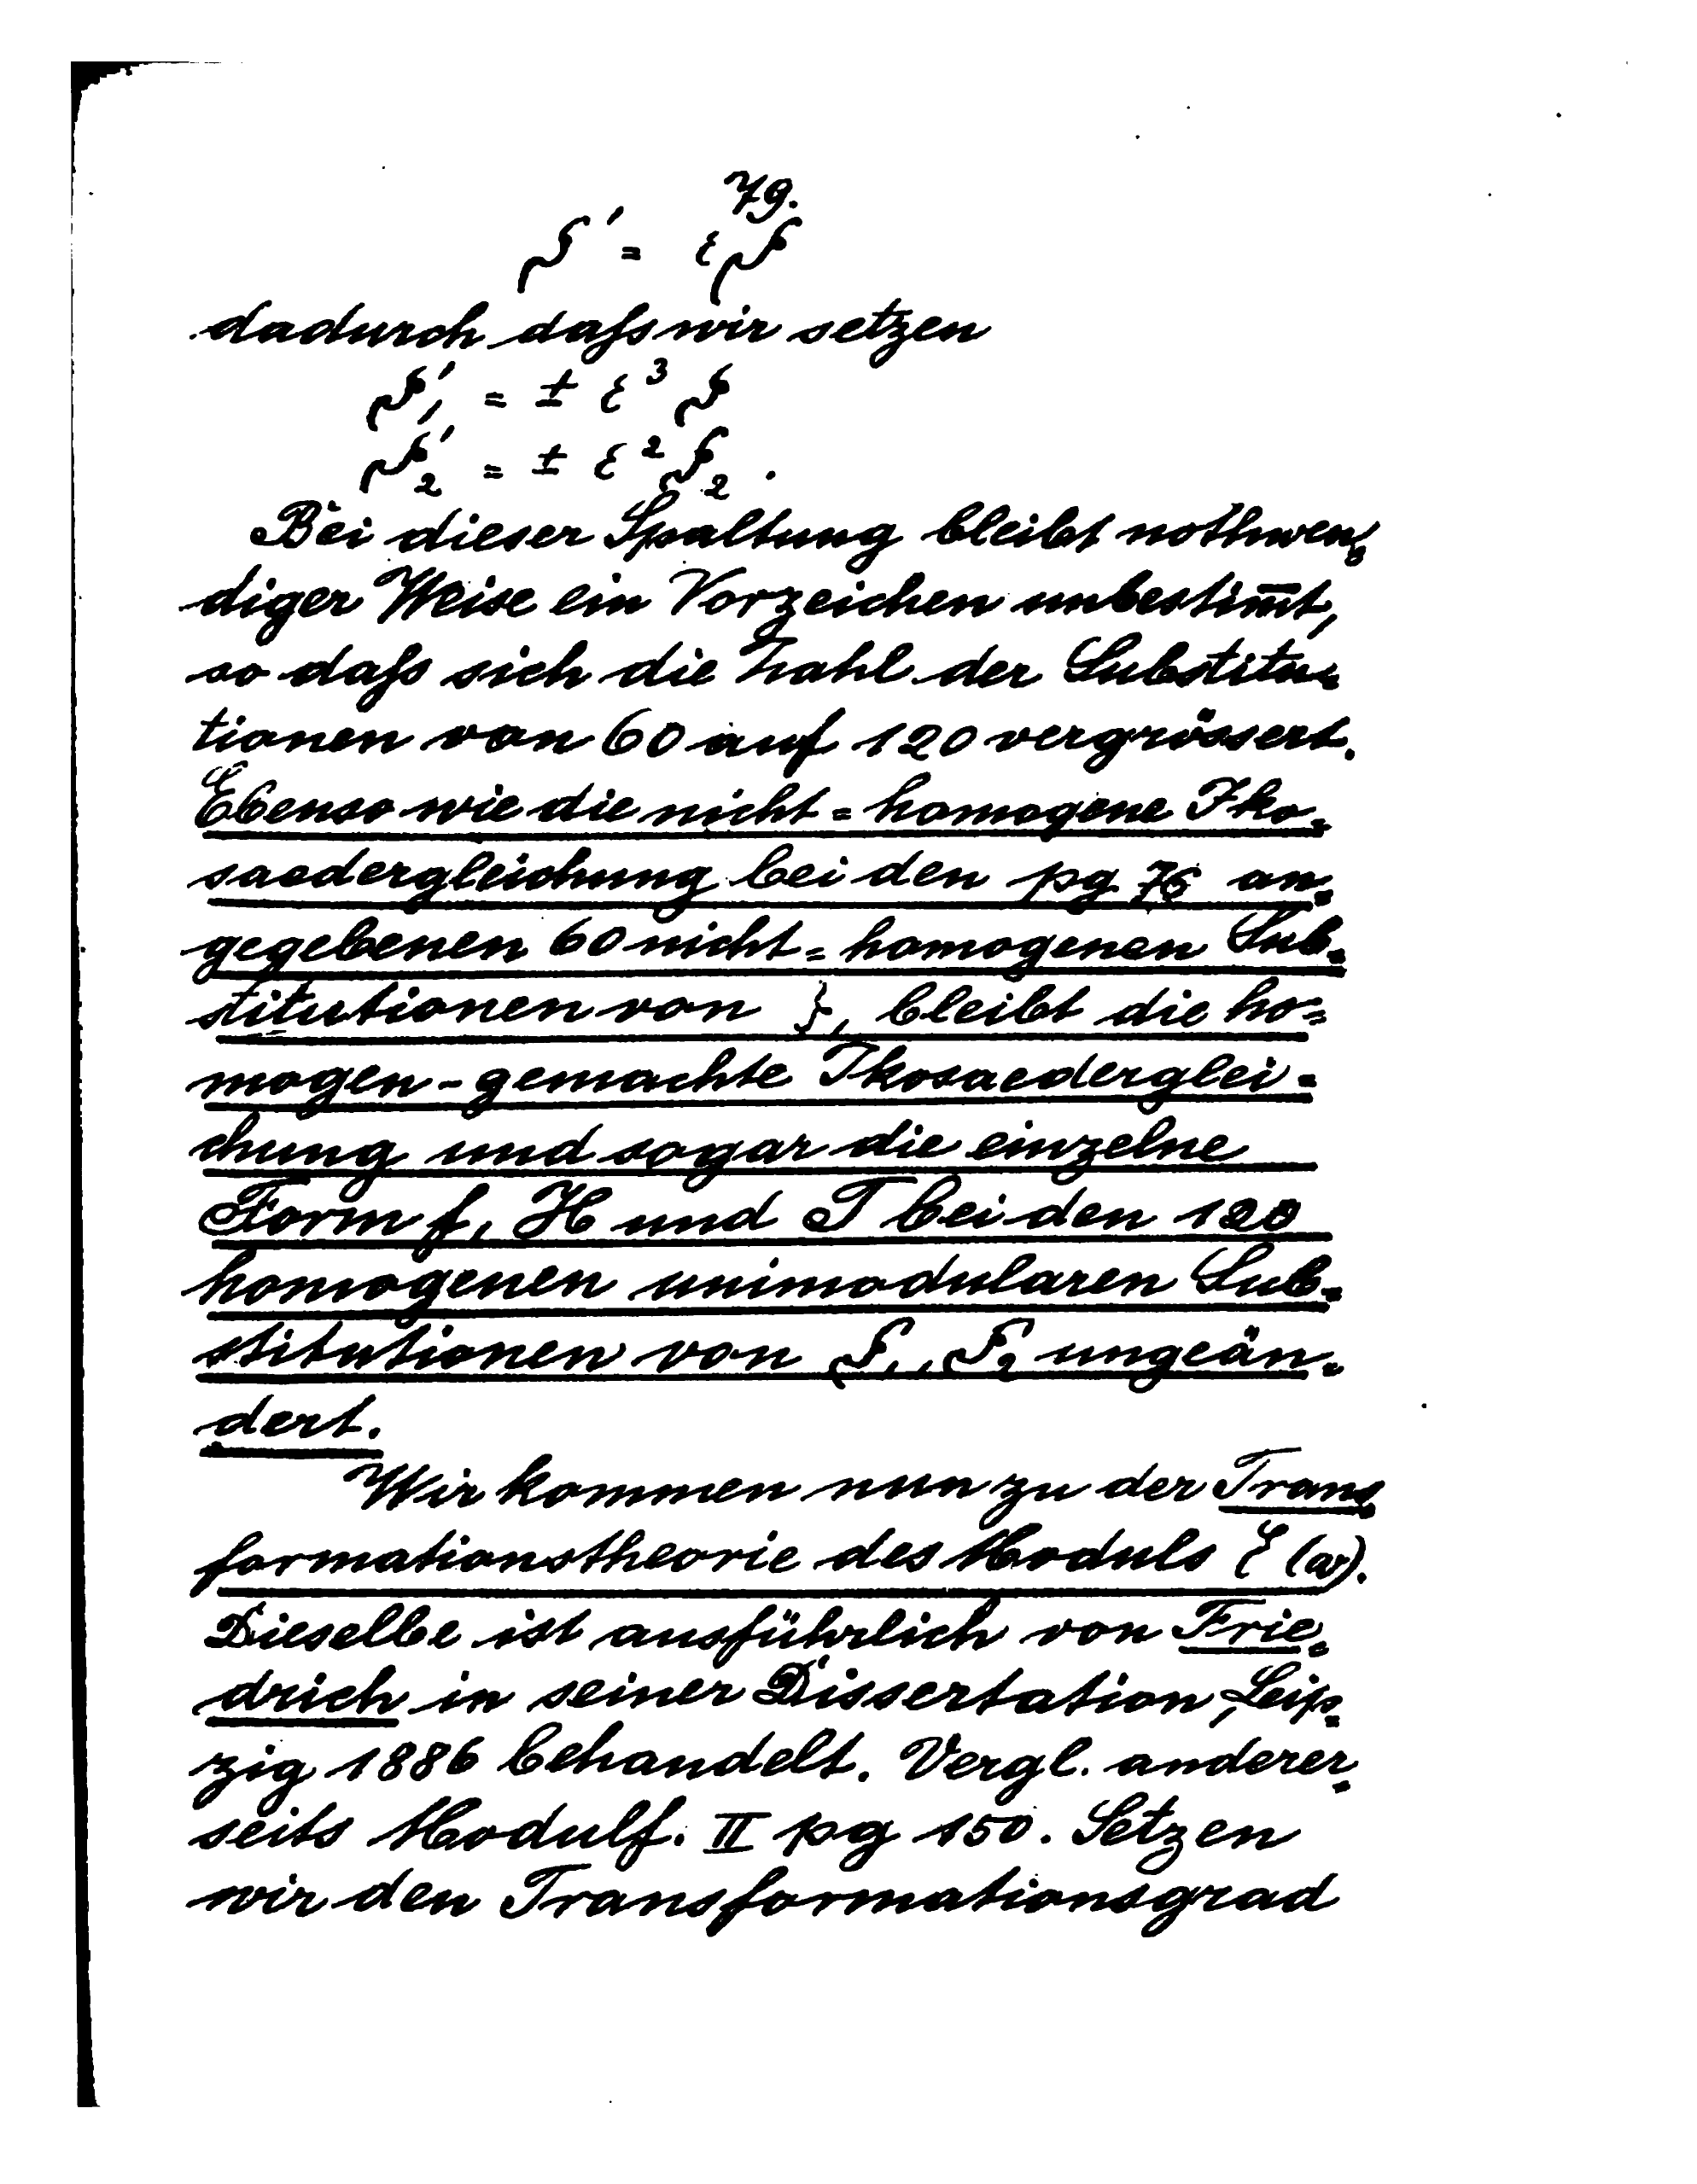 79.
ζ' = εζ
dadurch daſs wir setzen
ζ'₁ = ± ε³ ζ
ζ'₂ = ± ε² ζ₂.
Bei dieser Spaltung bleibt nothwen=
diger Weise ein Vorzeichen unbestim̅t,
so daſs sich die Zahl der Substitu=
tionen von 60 auf 120 vergrössert.
Ebenso wie die nicht=homogene Iko=
saedergleichung bei den pg 76 an=
gegebenen 60 nicht=homogenen Sub=
stitutionen von ζ, bleibt die ho=
mogen-gemachte Ikosaederglei=
chung und sogar die einzelne
Form f, H und T bei den 120
homogenen unimodularen Sub=
stitutionen von ζ₁, ζ₂ ungeän=
dert.
Wir kommen nun zu der Trans=
formationstheorie des Moduls ξ(ω).
Dieselbe ist ausführlich von Frie=
drich in seiner Dissertation, Leip=
zig 1886 behandelt. Vergl. anderer=
seits Modulf. II pg 150. Setzen
wir den Transformationsgrad